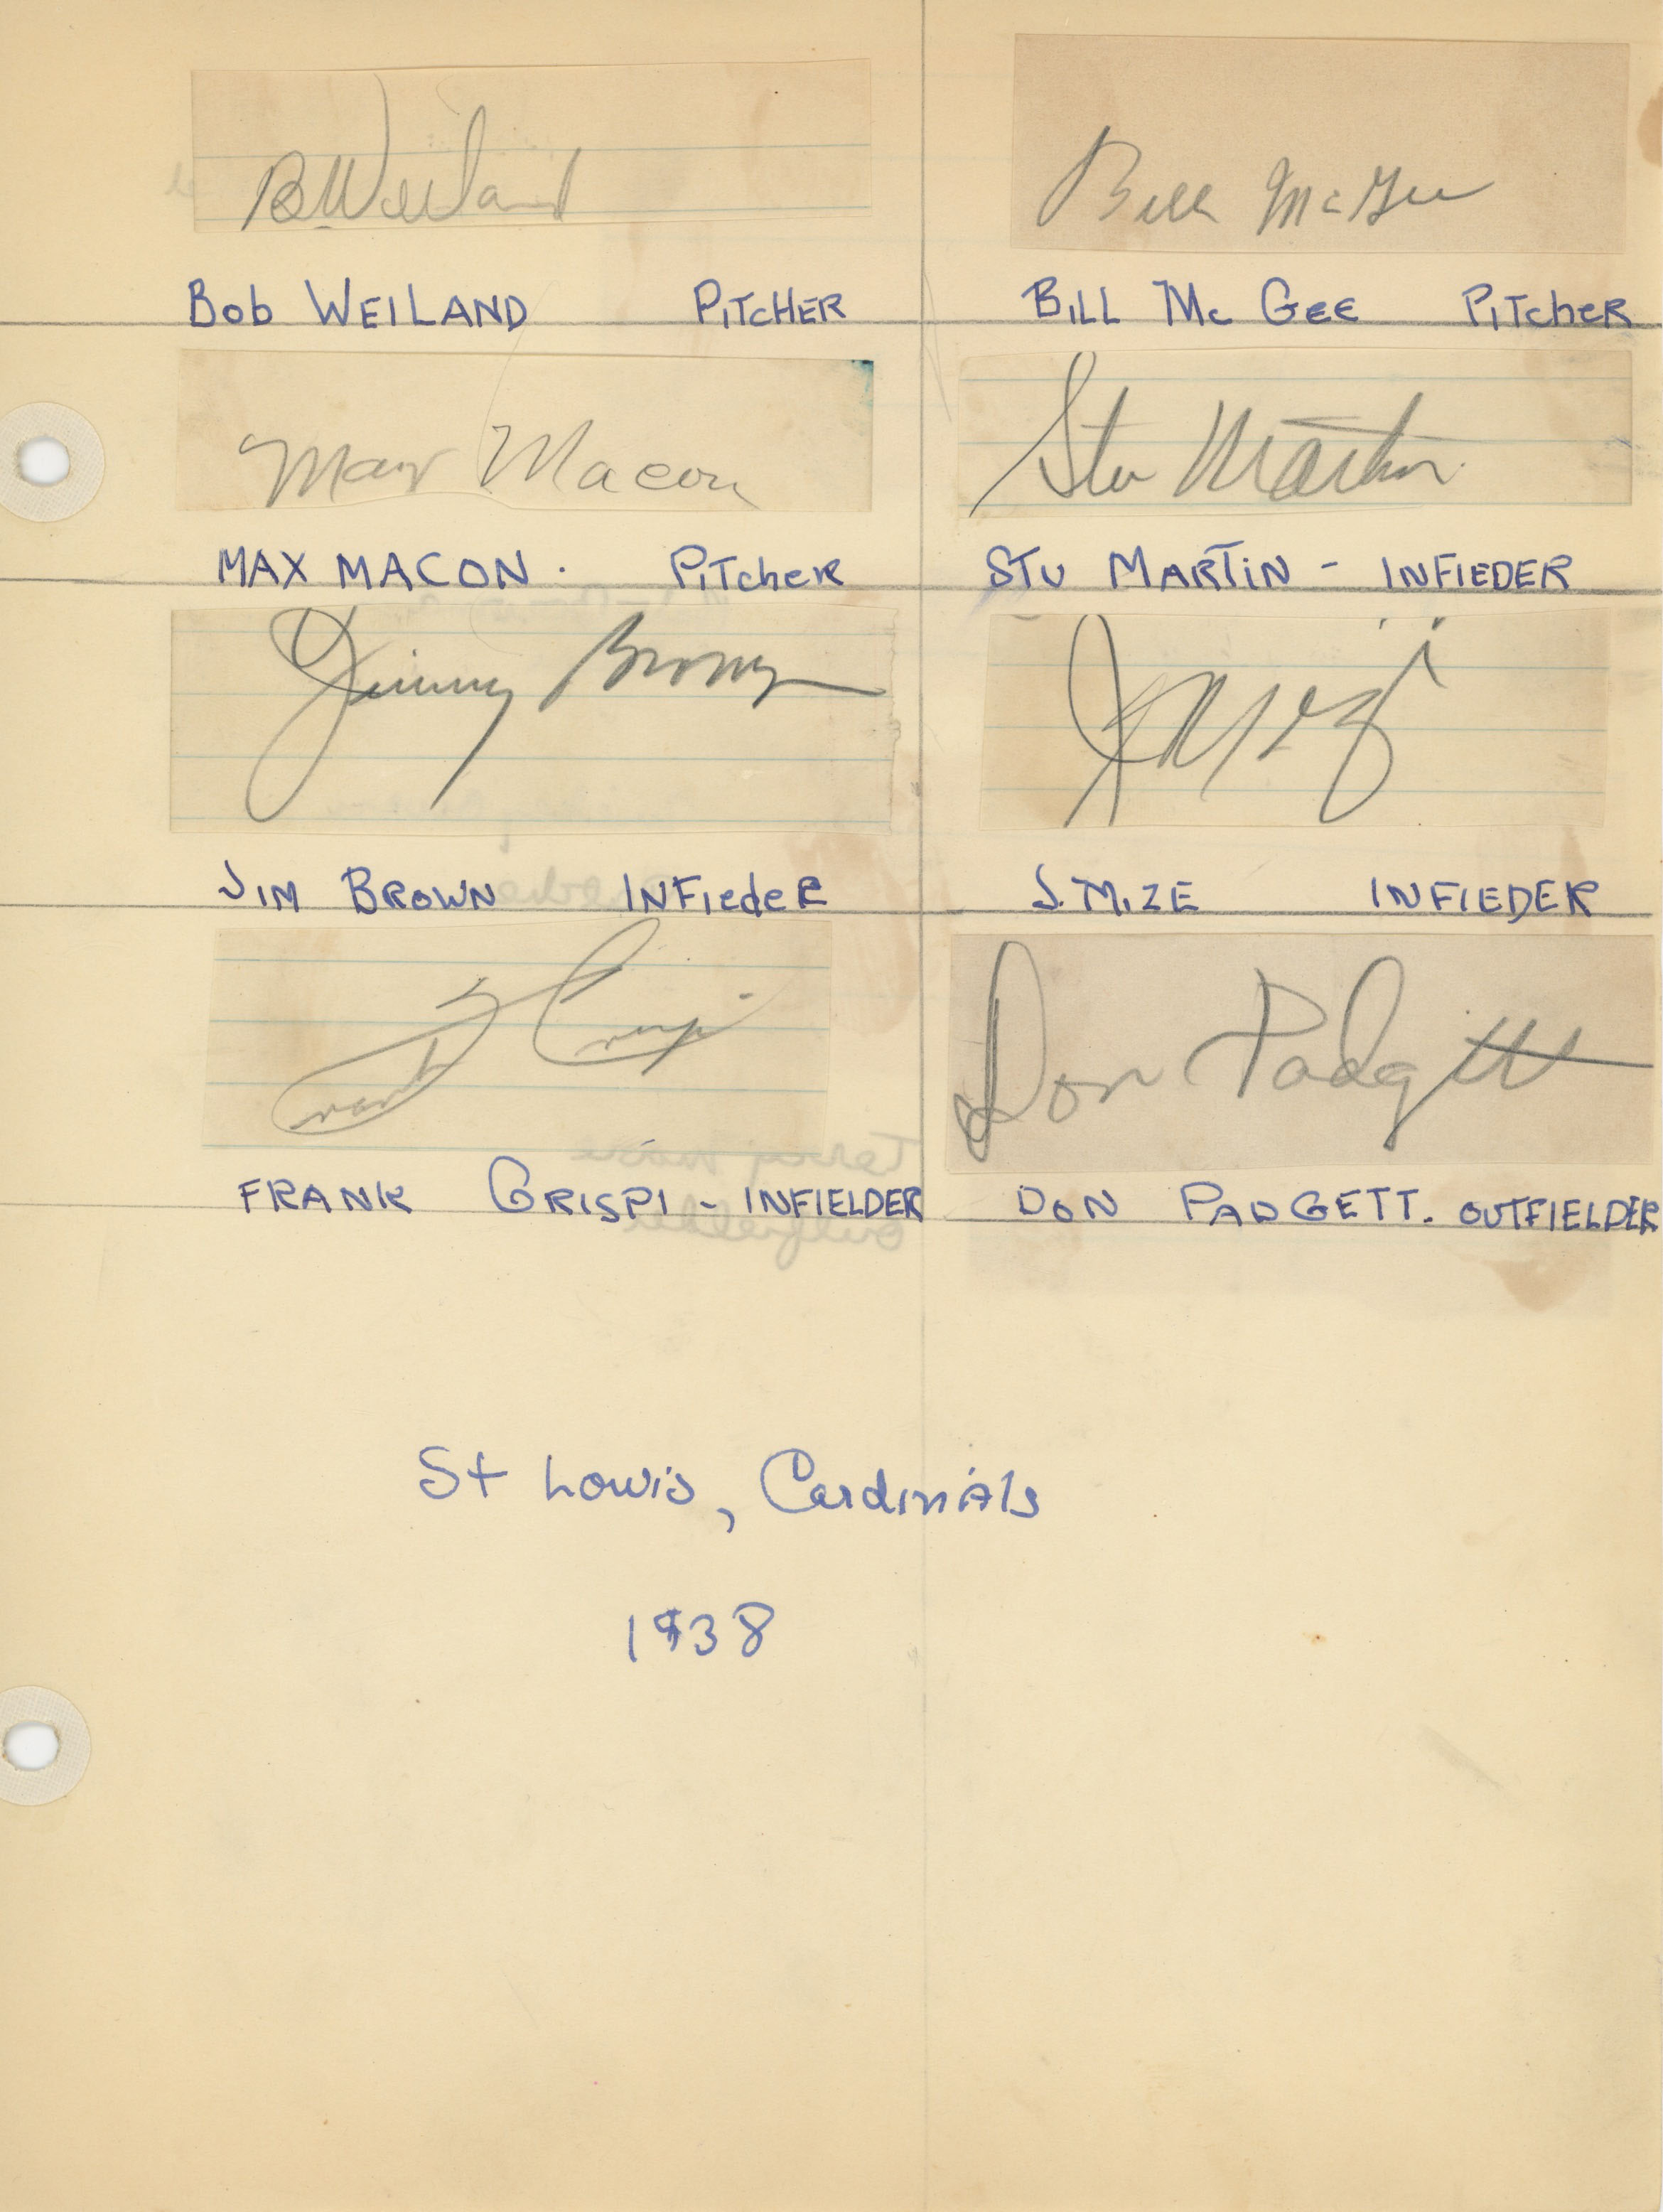 B Weiland
Bill McGee
Bob WEILAND PITCHER
BILL Mc GEE PITcheR
Max Macon
Stu Martin
MAX MACON. PITcheR
STU MARTIN - INFIEDER
Jimmy Brown
JIM BROWN INFIedeR
J. MIZE INFIEDER
Frank Crespi
Don Padgett
FRANK CRISPI - INFIELDER
DON PADGETT. OUTFIELDER
St Louis, Cardinals
1938